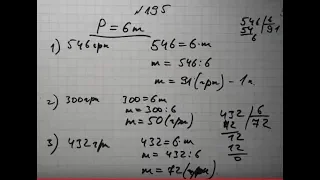 №195
P = 6m
1) 546 грн 546 = 6·m
m = 546:6
m = 91 (грн) - 1
2) 300 грн 300 = 6m
m = 300:6
m = 50 (грн)
3) 432 грн 432 = 6·m
m = 432:6
m = 72 (грн)
546 | 6
54 | 91
6
432 | 6
42 | 72
12
12
0